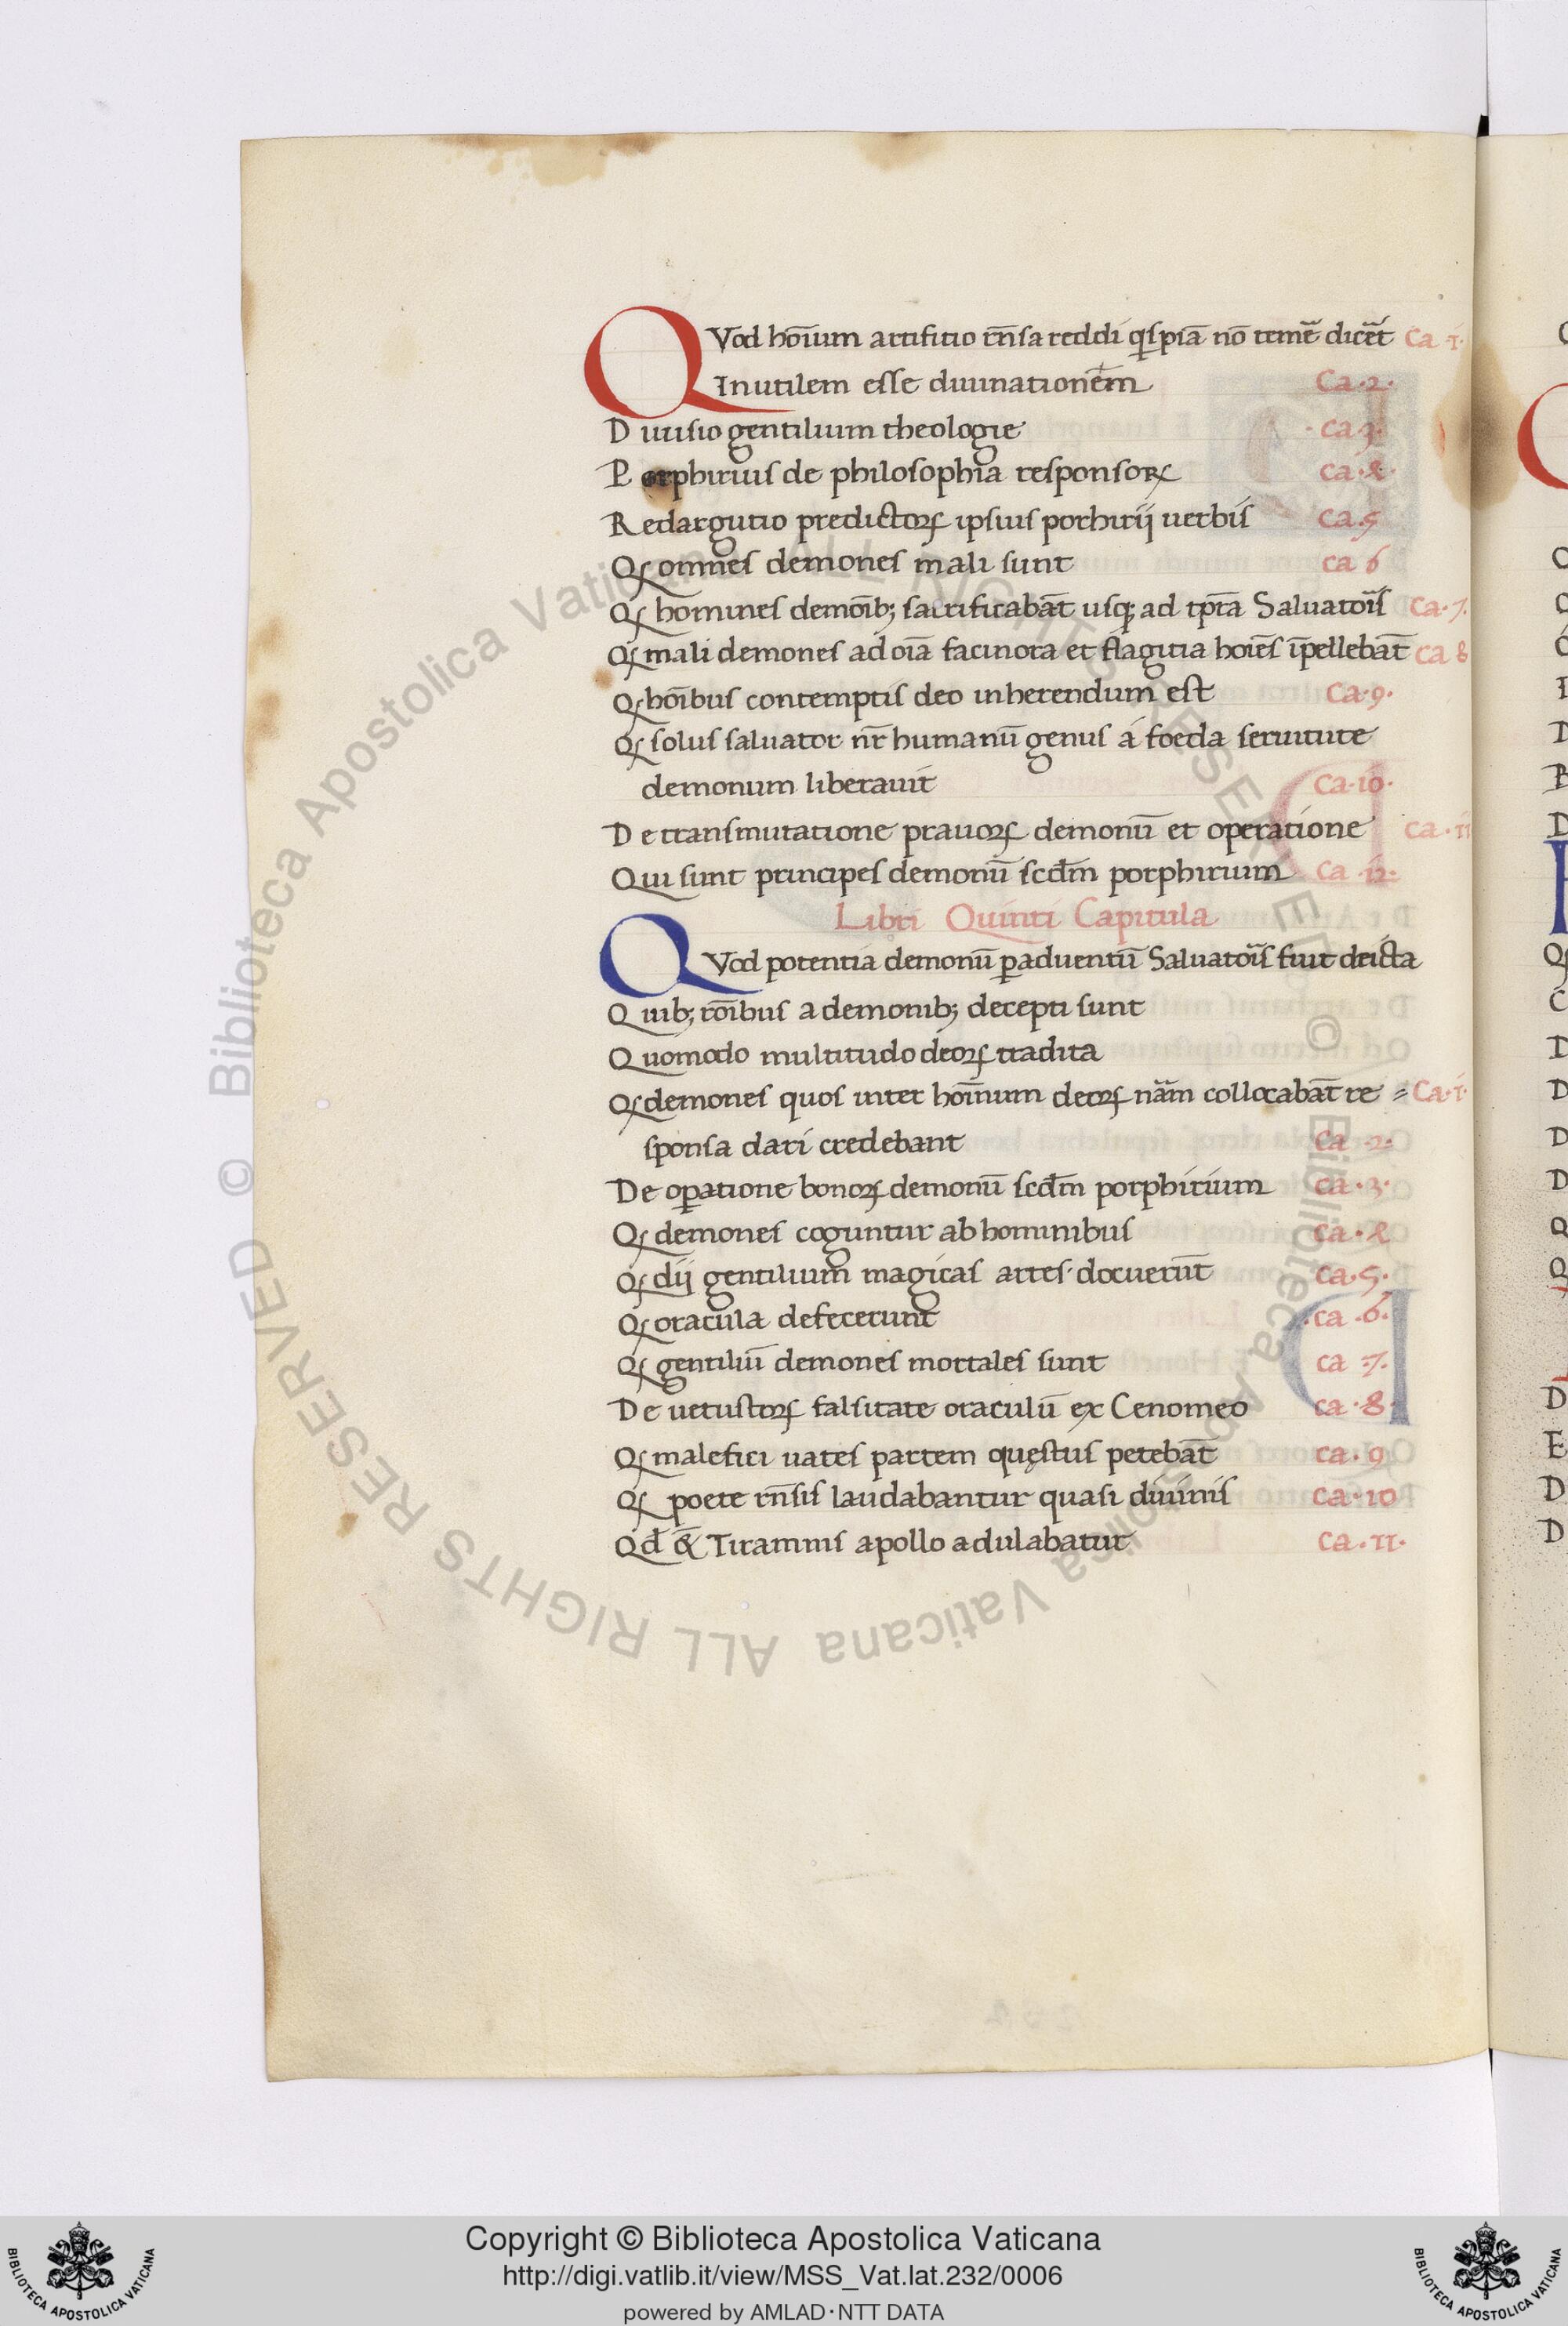 QVod hōīum artifitio rn̄sa reddi qͥspiā nō temē dicēt Ca ·1·
Inutilem esse diuinationem Ca ·2·
Diuisio gentilium theologie ·ca ·3·
Porphirius de philosophia responsoꝝ ca ·4·
Redargutio predictoꝝ ipsius porhirij uerbis ca ·5
Qꝫ omnes demones mali sunt ca 6
Qꝫ homines demōib; sacrificabāt usqꝫ ad tp̄ra Saluatoīs Ca ·7·
Qꝫ mali demones ad oīa facinora et flagitia hoīes īpellebāt ca 8
Qꝫ hōībus contemptis deo inherendum est Ca ·9·
Qꝫ solus saluator nr̄ humanū genus á foeda seruitute
demonum liberauit Ca ·10·
De transmutatione prauoꝝ demonū et operatione ca ·11
Qui sunt principes demonū scd̄m porphirium ca ·12·
Libri Quinti Capitula
QVod potentia demonū ꝑ aduentū Saluatoīs fuit deicta
Quib; rōībus a demonib; decepti sunt
Quomodo multitudo deoꝝ tradita
Qꝫ demones quos inter homīnum deoꝝ nām collocabāt re = Ca ·1·
sponsa dari credebant Ca ·2·
De oꝑatione bonoꝝ demonū scd̄m porphirium ca ·3·
Qꝫ demones coguntur ab hominibus ca ·4
Qꝫ dij gentilium magicas artes docuerūt ca ·5·
Qꝫ oracula defecerunt ca ·6·
Qꝫ gentiliū demones mortales sunt ca ·7·
De uetustoꝝ falsitate oraculū ex Cenomeo ca ·8·
Qꝫ malefici uates partem quęstus petebāt ca ·9
Qꝫ poete rn̄sis laudabantur quasi diuinis ca ·10
Qd̄ & Tirannis apollo adulabatur ca ·11·
© Biblioteca Apostolica Vaticana ALL RIGHTS RESERVED © Biblioteca Apostolica Vaticana ALL RIGHTS RESERVED
BIBLIOTECA APOSTOLICA VATICANA
Copyright © Biblioteca Apostolica Vaticana
http://digi.vatlib.it/view/MSS_Vat.lat.232/0006
powered by AMLAD·NTT DATA
BIBLIOTECA APOSTOLICA VATICANA